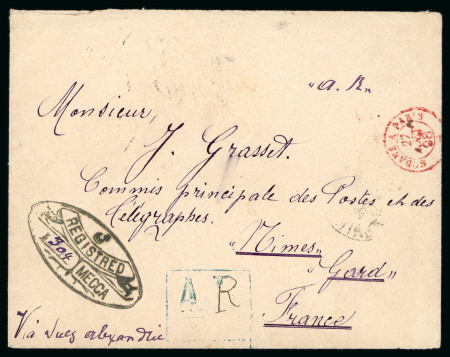 "A. R"
Monsieur,
J. Grasset.
Commis principale des Postes et des
Télégraphes.
"Nimes"
"Gard"
France
Via Suez alexandrie
REGISTRED
304
MECCA
A R
MODANE A PARIS
27